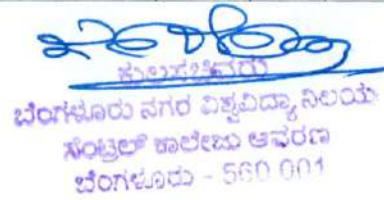 ಕುಲಸಚಿವರು
ಬೆಂಗಳೂರು ನಗರ ವಿಶ್ವವಿದ್ಯಾನಿಲಯ
ಸೆಂಟ್ರಲ್ ಕಾಲೇಜು ಆವರಣ
ಬೆಂಗಳೂರು - 560 001